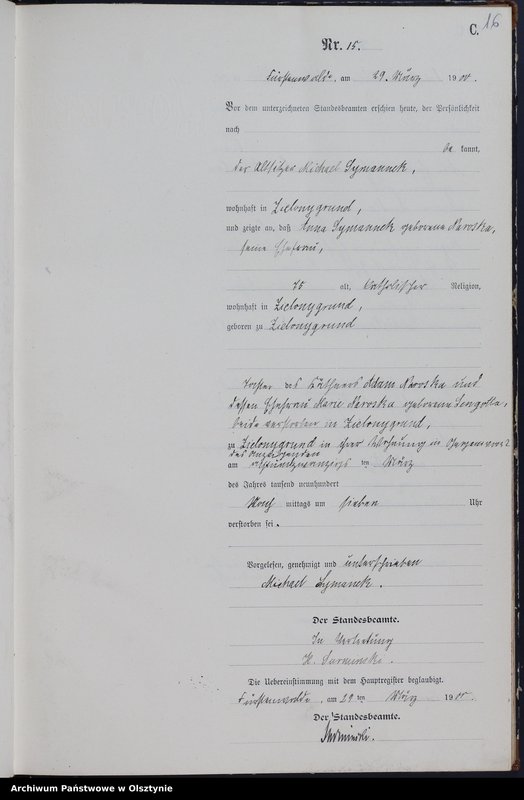 C. 16
Nr. 15.
Fürstenwalde, am 29. März 1900.
Vor dem unterzeichneten Standesbeamten erschien heute, der Persönlichkeit
nach
be kannt,
der Altsitzer Michael Symannek,
wohnhaft in Zielonygrund,
und zeigte an, daß Anna Symannek geborene Naroska,
seine Ehefrau,
75 alt, katholischer Religion,
wohnhaft in Zielonygrund,
geboren zu Zielonygrund
Tochter des Käthners Adam Naroska und
dessen Ehefrau Marie Naroska geborene
beide verstorben in Zielonygrund,
zu Zielonygrund in ihrer Wohnung in
des Anzeigenden
am achtundzwanzigs ten März
des Jahres tausend neunhundert
Nach mittags um sieben Uhr
verstorben sei.
Vorgelesen, genehmigt und unterschrieben
Michael Symanek.
Der Standesbeamte.
In Vertretung
Die Uebereinstimmung mit dem Hauptregister beglaubigt.
Fürstenwalde, am 29 ten März 1900.
Der Standesbeamte.
Archiwum Państwowe w Olsztynie